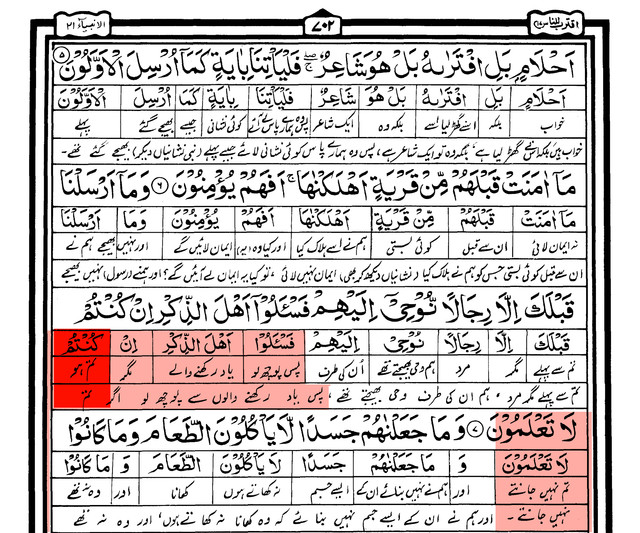 اقترب للناس ۱۷ ۷۰۲ الانبیاء ۲۱
اَحْلَامٍ بَلِ افْتَرٰىهُ بَلْ هُوَ شَاعِرٌ ۖ فَلْیَاْتِنَا بِاٰیَةٍ كَمَاۤ اُرْسِلَ الْاَوَّلُوْنَ ۵
اَحْلَامٍ بَلِ افْتَرٰىهُ بَلْ هُوَ شَاعِرٌ فَلْیَاْتِنَا بِاٰیَةٍ كَمَاۤ اُرْسِلَ الْاَوَّلُوْنَ
خواب بلکہ اسنے گھڑ لیا ہے بلکہ وہ ایک شاعر پس وہ ہمارے پاس لے آئے کوئی نشانی جیسے بھیجے گئے پہلے
خواب ہیں بلکہ اسنے گھڑ لیا ہے، بلکہ وہ تو ایک شاعر ہے، پس وہ ہمارے پاس کوئی نشانی لائے جیسے پہلے (نبی نشانیاں دیکر) بھیجے گئے تھے۔
مَاۤ اٰمَنَتْ قَبْلَهُمْ مِّنْ قَرْیَةٍ اَهْلَكْنٰهَا ۚ اَفَهُمْ یُؤْمِنُوْنَ ۶ وَمَاۤ اَرْسَلْنَا
مَاۤ اٰمَنَتْ قَبْلَهُمْ مِّنْ قَرْیَةٍ اَهْلَكْنٰهَا اَفَهُمْ یُؤْمِنُوْنَ وَمَاۤ اَرْسَلْنَا
نہ ایمان لائی ان سے قبل کوئی بستی ہم نے اسے ہلاک کیا اور کیا وہ (یہ) ایمان لائیں گے اور نہیں بھیجے ہم نے
ان سے قبل کوئی بستی جس کو ہم نے ہلاک کیا (نشانیاں دیکھ کر بھی) ایمان نہیں لائی، تو کیا یہ ایمان لے آئیں گے؟ اور ہمنے (رسول) نہیں بھیجے
قَبْلَكَ اِلَّا رِجَالًا نُّوْحِیْۤ اِلَیْهِمْ فَسْـَٔلُوْۤا اَهْلَ الذِّكْرِ اِنْ كُنْتُمْ
قَبْلَكَ اِلَّا رِجَالًا نُّوْحِیْۤ اِلَیْهِمْ فَسْـَٔلُوْۤا اَهْلَ الذِّكْرِ اِنْ كُنْتُمْ
تم سے پہلے مگر مرد ہم وحی بھیجتے تھے اُن کی طرف پس پوچھ لو یاد رکھنے والے مگر تم ہو
تم سے پہلے مگر مرد، ہم ان کی طرف وحی بھیجتے تھے، پس یاد رکھنے والوں سے پوچھ لو اگر تم
لَا تَعْلَمُوْنَ ۷ وَمَا جَعَلْنٰهُمْ جَسَدًا لَّا یَاْكُلُوْنَ الطَّعَامَ وَمَا كَانُوْا
لَا تَعْلَمُوْنَ وَ مَا جَعَلْنٰهُمْ جَسَدًا لَّا یَاْكُلُوْنَ الطَّعَامَ وَ مَا كَانُوْا
تم نہیں جانتے اور ہم نے نہیں بنائے ان کے ایسے جسم نہ کھاتے ہوں کھانا اور وہ نہ تھے
نہیں جانتے۔ اور ہم نے ان کے ایسے جسم نہیں بنائے کہ وہ کھانا نہ کھاتے ہوں، اور وہ نہ تھے